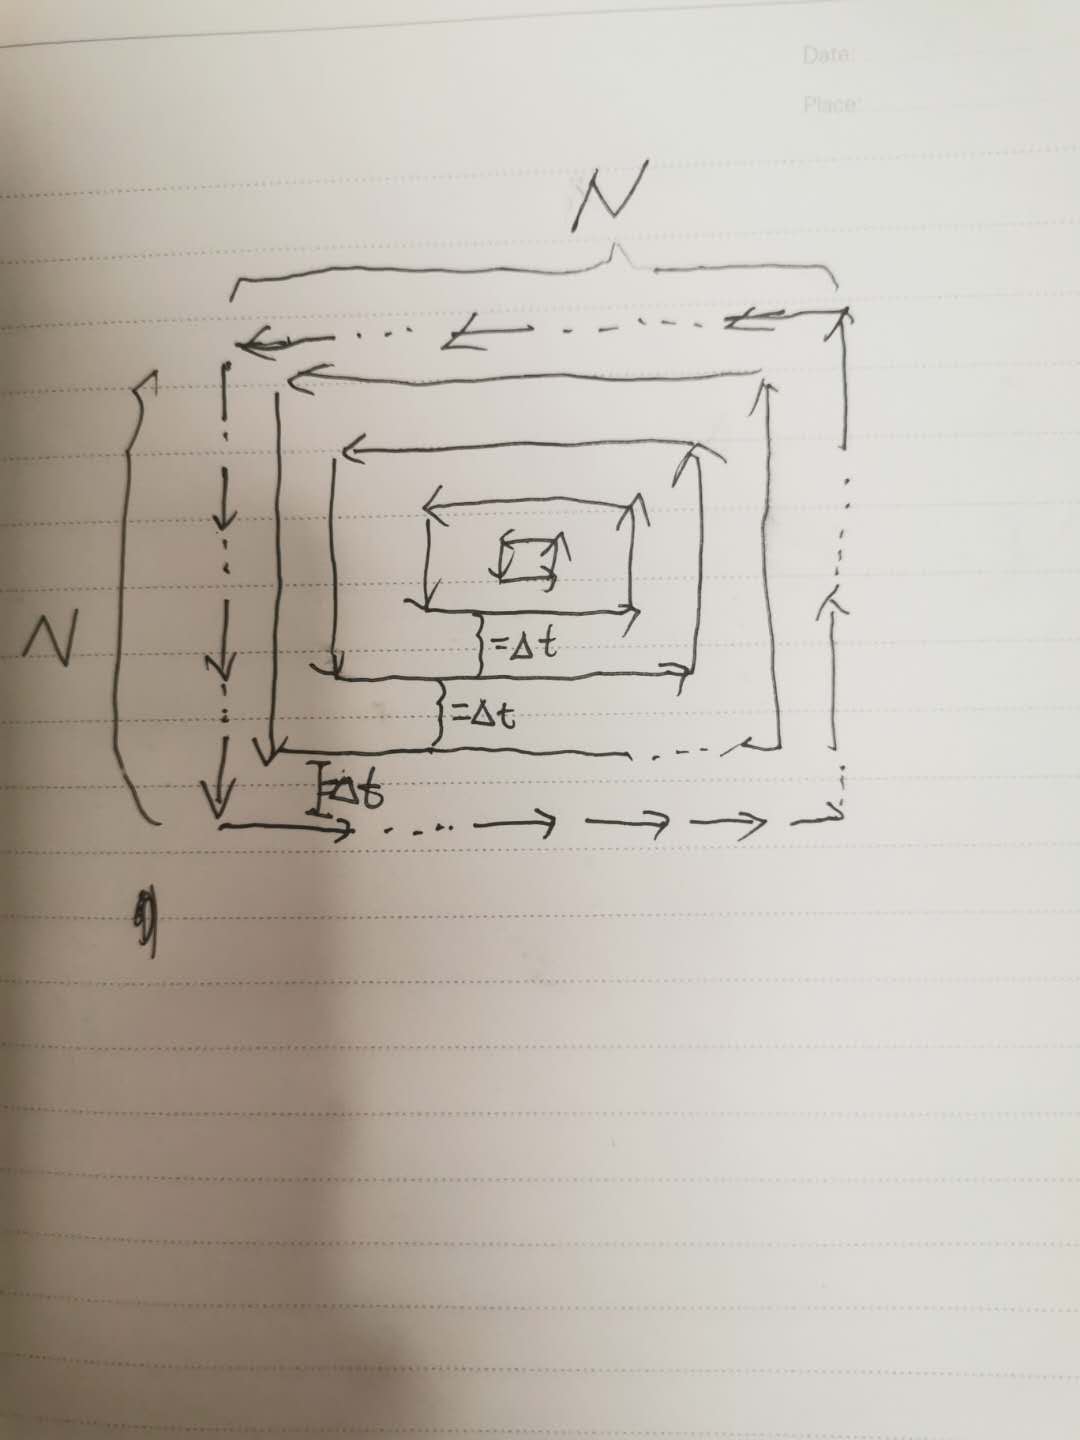 Date:
Place:
N
N
=Δt
=Δt
=Δt